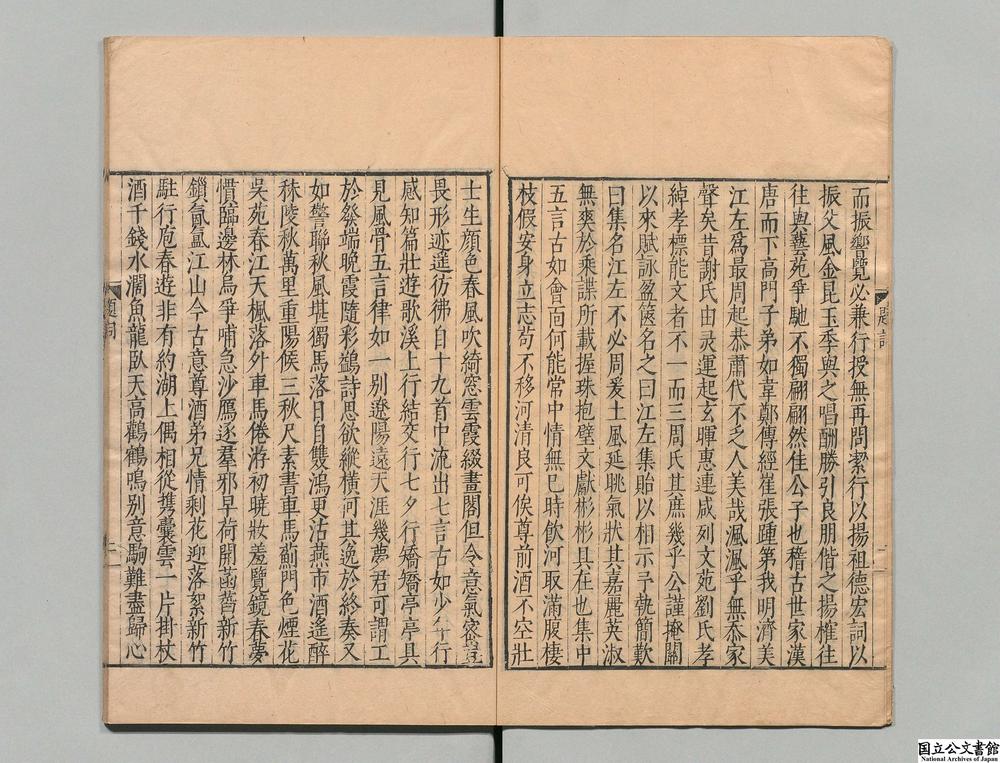 而振響覽必兼行授無再問絜行以揚祖德宏詞以
振父風金昆玉季與之唱酬勝引良朋偕之揚榷往
往與藝苑爭馳不獨翩翩然佳公子也稽古世家漢
唐而下高門子弟如韋鄭傳經崔張踵第我明濟美
江左爲最周起恭肅代不乏人美哉渢渢乎無忝家
聲矣昔謝氏由靈運起玄暉惠連咸列文苑劉氏孝
綽孝標能文者不一而三周氏其庶幾乎公謹掩關
以來賦詠盈篋名之曰江左集貽以相示予執簡歎
曰集名江左不必周爰土風延眺氣狀其嘉麗英淑
無爽於乘諜所載握珠抱璧文獻彬彬具在也集中
五言古如會面何能常中情無巳時飲河取滿腹棲
枝假安身立志苟不移河清良可俟尊前酒不空壯
士生顔色春風吹綺窓雲霞綴畫閣但令意氣密豈
畏形迹遥彷彿自十九首中流出七言古如少年行
感知篇壯遊歌溪上行結交行七夕行矯矯亭亭具
見風骨五言律如一别遼陽遠天涯幾夢君可謂工
於發端晚霞隨彩鷁詩思欲縱橫河其逸於終奏又
如警聯秋風堪獨馬落日自雙鴻更沽燕市酒遙醉
秣陵秋萬里重陽候三秋尺素書車馬薊門色煙花
吳苑春江天楓落外車馬倦游初曉妝羞覽鏡春夢
惜臨邊林烏爭哺急沙鴈逐羣邪早荷開菡萏新竹
鎖氤氳江山今古意尊酒弟兄情剩花迎落絮新竹
駐行庖春遊非有約湖上偶相從携囊雲一片掛杖
酒千錢水濶魚龍臥天高鸛鶴鳴别意駒難盡歸心
題詞
二
国立公文書館
National Archives of Japan